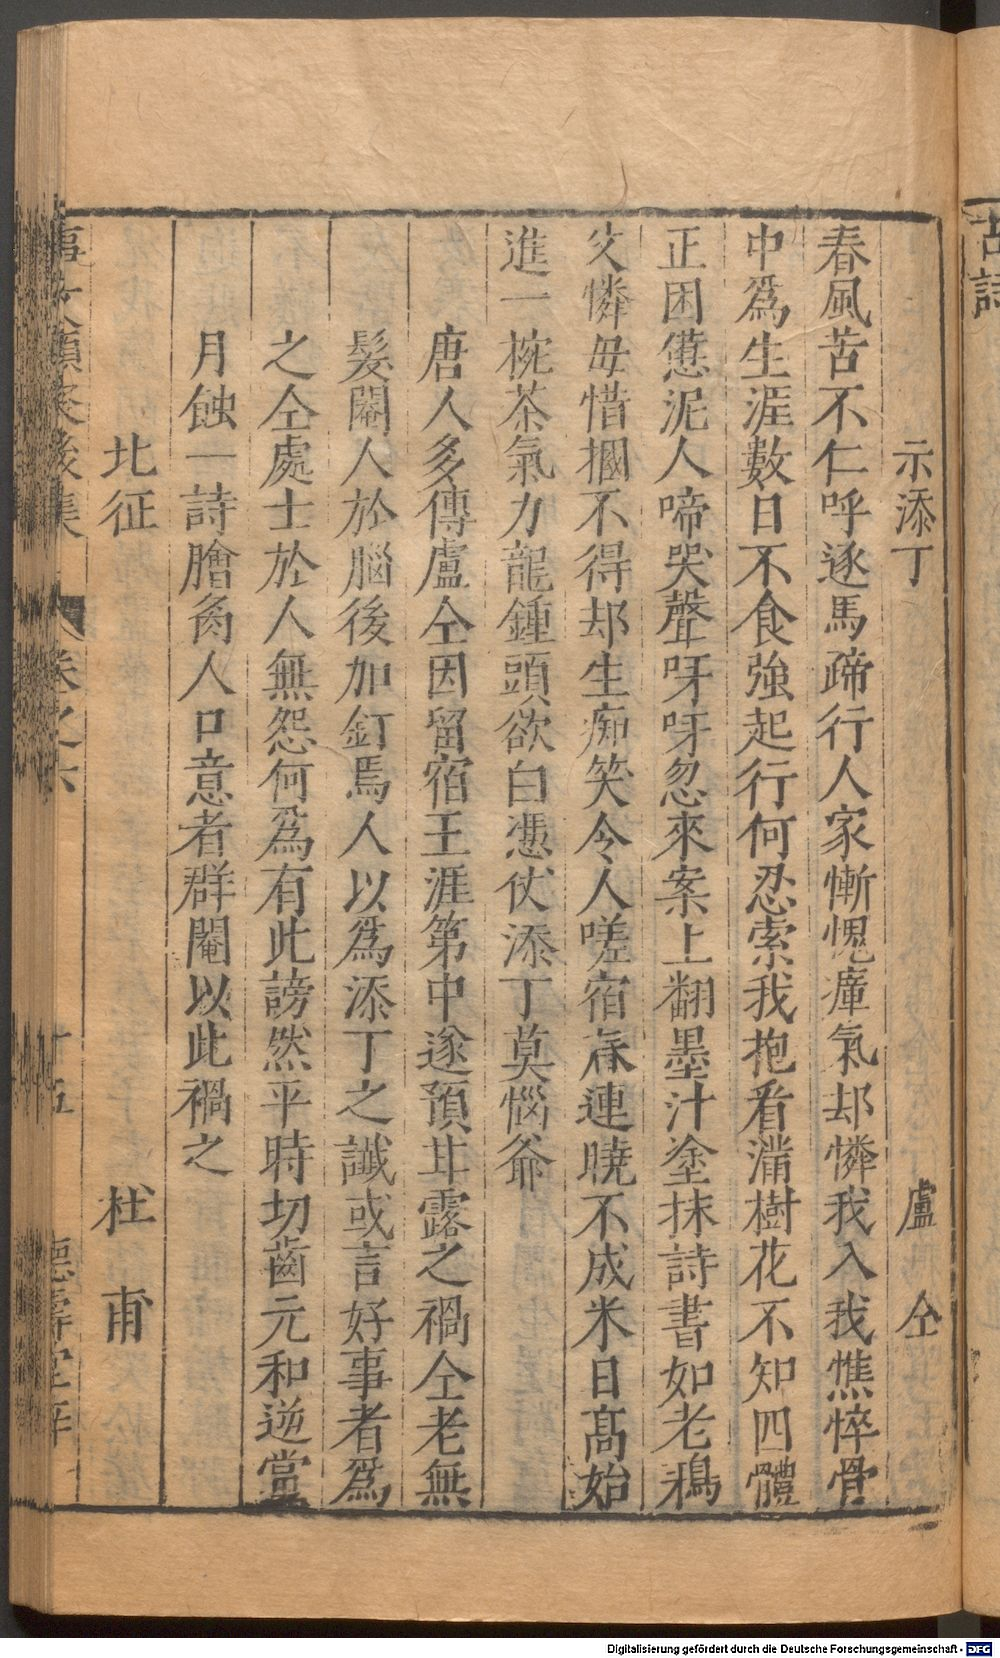 示添丁 盧仝
春風苦不仁呼逐馬蹄行人家慚愧瘴氣却憐我入我憔悴骨
中爲生涯數日不食強起行何忍索我抱看滿樹花不知四體
正困憊泥人啼哭聲呀呀忽來案上翻墨汁塗抹詩書如老鴉
父憐母惜摑不得却生痴笑令人嗟宿舂連曉不成米日高始
進一椀茶氣力龍鍾頭欲白憑仗添丁莫惱爺
唐人多傳盧仝因留宿王涯第中遂預甘露之禍仝老無
髮閹人於腦後加釘焉人以爲添丁之讖或言好事者爲
之仝處士於人無怨何爲有此謗然平時切齒元和逆黨
月蝕一詩膾炙人口意者群閹以此禍之
北征 杜甫
事文類聚後集 卷之六 十五 德壽堂梓
古詩
Digitalisierung gefördert durch die Deutsche Forschungsgemeinschaft - DFG